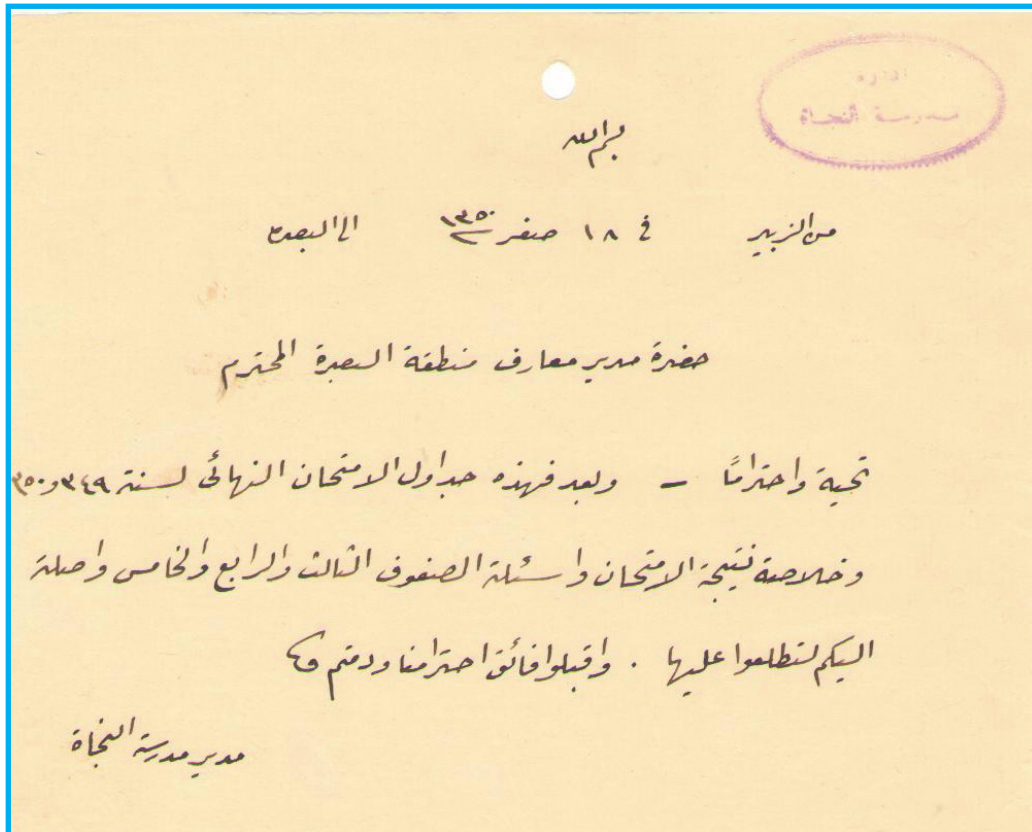 ادارة
مدرسة النجاة
بسم الله
من الزبير في ١٨ صفر ١٣٥٠ الى البصرة
حضرة مدير معارف منطقة البصرة المحترم
تحية واحترامًا – وبعد فهذه جداول الامتحان النهائي لسنة ٣٤٩ و٣٥٠
وخلاصة نتيجة الامتحان واسئلة الصفوف الثالث والرابع والخامس واصلة
اليكم لتطلعوا عليها . واقبلوا فائق احترامنا ودمتم
مدير مدرسة النجاة